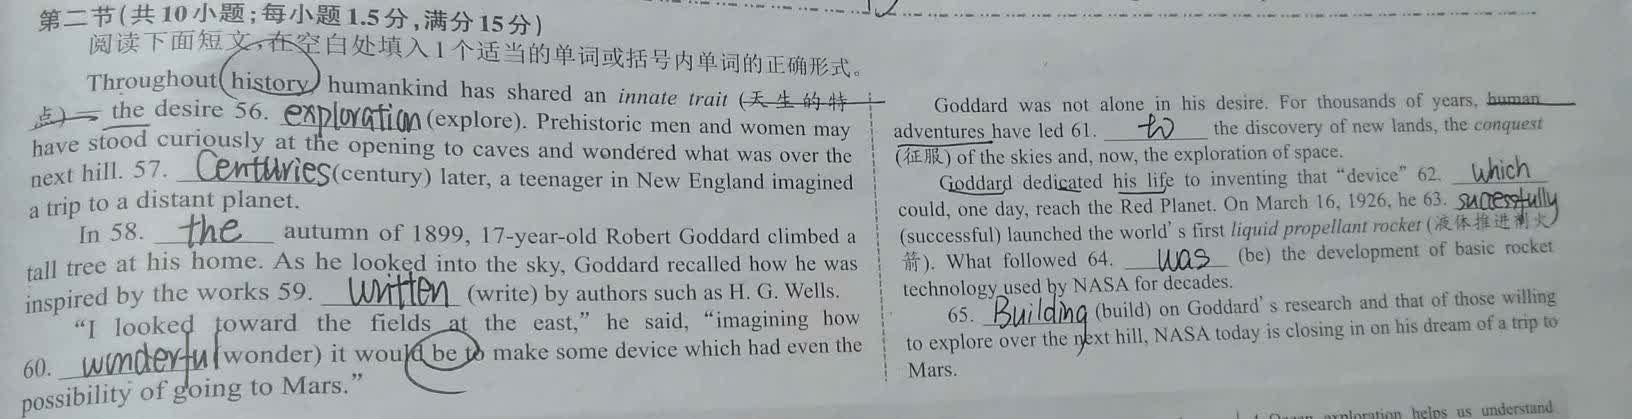 第二节(共10小题;每小题1.5分,满分15分)
阅读下面短文,在空白处填入1个适当的单词或括号内单词的正确形式。
Throughout history, humankind has shared an innate trait (天生的特
点) — the desire 56. exploration (explore). Prehistoric men and women may
have stood curiously at the opening to caves and wondered what was over the
next hill. 57. Centuries (century) later, a teenager in New England imagined
a trip to a distant planet.
In 58. the autumn of 1899, 17-year-old Robert Goddard climbed a
tall tree at his home. As he looked into the sky, Goddard recalled how he was
inspired by the works 59. written (write) by authors such as H. G. Wells.
“I looked toward the fields at the east,” he said, “imagining how
60. wonderful (wonder) it would be to make some device which had even the
possibility of going to Mars.”
Goddard was not alone in his desire. For thousands of years, human
adventures have led 61. to the discovery of new lands, the conquest
(征服) of the skies and, now, the exploration of space.
Goddard dedicated his life to inventing that “device” 62. which
could, one day, reach the Red Planet. On March 16, 1926, he 63. sucessfully
(successful) launched the world's first liquid propellant rocket (液体推进剂火
箭). What followed 64. was (be) the development of basic rocket
technology used by NASA for decades.
65. Building (build) on Goddard's research and that of those willing
to explore over the next hill, NASA today is closing in on his dream of a trip to
Mars.
exploration helps us understand